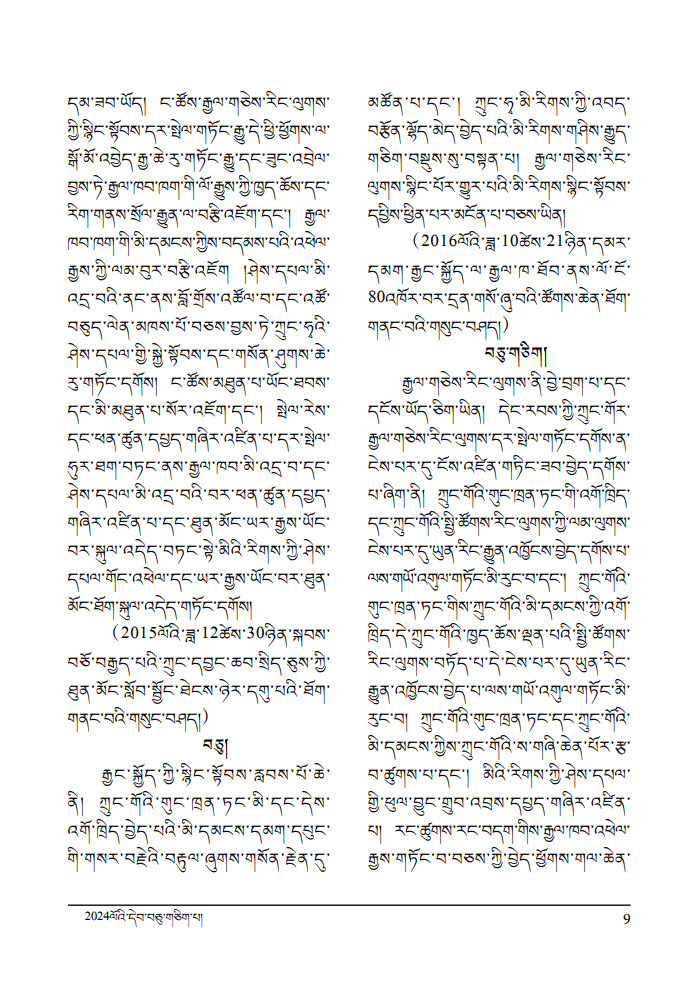 དམ་ཟབ་ཡོད། ང་ཚོས་རྒྱལ་གཅེས་རིང་ལུགས་
ཀྱི་སྙིང་སྟོབས་དར་སྤེལ་གཏོང་རྒྱུ་དེ་ཕྱི་ཕྱོགས་ལ་
སྒོ་མོ་འབྱེད་རྒྱ་ཆེ་རུ་གཏོང་རྒྱུ་དང་ཟུང་འབྲེལ་
བྱས་ཏེ་རྒྱལ་ཁབ་ཁག་གི་ལོ་རྒྱུས་ཀྱི་ཁྱད་ཆོས་དང་
རིག་གནས་སྲོལ་རྒྱུན་ལ་བརྩི་འཇོག་དང་། རྒྱལ་
ཁབ་ཁག་གི་མི་དམངས་ཀྱིས་བདམས་པའི་འཕེལ་
རྒྱས་ཀྱི་ལམ་བུར་བརྩི་འཇོག །ཤེས་དཔལ་མི་
འདྲ་བའི་ནང་ནས་བློ་གྲོས་འཚོལ་བ་དང་འཚོ་
བཅུད་ལེན་མཁས་པོ་བཅས་བྱས་ཏེ་ཀྲུང་ཧྭའི་
ཤེས་དཔལ་གྱི་སྐྱེ་སྟོབས་དང་གསོན་ཤུགས་ཆེ་
རུ་གཏོང་དགོས། ང་ཚོས་མཐུན་པ་ཡོང་ཐབས་
དང་མི་མཐུན་པ་སོར་འཇོག་དང་། སྤེལ་རེས་
དང་ཕན་ཚུན་དཔྱད་གཞིར་འཛིན་པ་དར་སྤེལ་
ཧུར་ཐག་བཏང་ནས་རྒྱལ་ཁབ་མི་འདྲ་བ་དང་
ཤེས་དཔལ་མི་འདྲ་བའི་བར་ཕན་ཚུན་དཔྱད་
གཞིར་འཛིན་པ་དང་ཐུན་མོང་ཡར་རྒྱས་ཡོང་
བར་སྐུལ་འདེད་བཏང་སྟེ་མིའི་རིགས་ཀྱི་ཤེས་
དཔལ་གོང་འཕེལ་དང་ཡར་རྒྱས་ཡོང་བར་ཐུན་
མོང་ཐོག་སྐུལ་འདེད་གཏོང་དགོས།
(2015ལོའི་ཟླ་12ཚེས་30ཉིན་སྐབས་
བཅོ་བརྒྱད་པའི་ཀྲུང་དབྱང་ཆབ་སྲིད་ཅུས་ཀྱི་
ཐུན་མོང་སློབ་སྦྱོང་ཐེངས་ཉེར་དགུ་པའི་ཐོག་
གནང་བའི་གསུང་བཤད།)
བཅུ།
རྒྱང་སྐྱོད་ཀྱི་སྙིང་སྟོབས་རླབས་པོ་ཆེ་
ནི། ཀྲུང་གོའི་གུང་ཁྲན་ཏང་མི་དང་དེས་
འགོ་ཁྲིད་བྱེད་པའི་མི་དམངས་དམག་དཔུང་
གི་གསར་བརྗེའི་བརྟུལ་ཞུགས་གསོན་རྗེན་དུ་
མཚོན་པ་དང་། ཀྲུང་ཧྭ་མི་རིགས་ཀྱི་འབད་
བརྩོན་ལྷོད་མེད་བྱེད་པའི་མི་རིགས་གཤིས་རྒྱུད་
གཅིག་བསྡུས་སུ་བསྟན་པ། རྒྱལ་གཅེས་རིང་
ལུགས་སྙིང་པོར་གྱུར་པའི་མི་རིགས་སྙིང་སྟོབས་
དཔྱིས་ཕྱིན་པར་མངོན་པ་བཅས་ཡིན།
(2016ལོའི་ཟླ་10ཚེས་21ཉིན་དམར་
དམག་རྒྱང་སྐྱོད་ལ་རྒྱལ་ཁ་ཐོབ་ནས་ལོ་ངོ་
80འཁོར་བར་དྲན་གསོ་ཞུ་བའི་ཚོགས་ཆེན་ཐོག་
གནང་བའི་གསུང་བཤད།)
བཅུ་གཅིག
རྒྱལ་གཅེས་རིང་ལུགས་ནི་བྱེ་བྲག་པ་དང་
དངོས་ཡོད་ཅིག་ཡིན། དེང་རབས་ཀྱི་ཀྲུང་གོར་
རྒྱལ་གཅེས་རིང་ལུགས་དར་སྤེལ་གཏོང་དགོས་ན་
ངེས་པར་དུ་ངོས་འཛིན་གཏིང་ཟབ་བྱེད་དགོས་
པ་ཞིག་ནི། ཀྲུང་གོའི་གུང་ཁྲན་ཏང་གི་འགོ་ཁྲིད་
དང་ཀྲུང་གོའི་སྤྱི་ཚོགས་རིང་ལུགས་ཀྱི་ལམ་ལུགས་
ངེས་པར་དུ་ཡུན་རིང་རྒྱུན་འཁྱོངས་བྱེད་དགོས་པ་
ལས་གཡོ་འགུལ་གཏོང་མི་རུང་བ་དང་། ཀྲུང་གོའི་
གུང་ཁྲན་ཏང་གིས་ཀྲུང་གོའི་མི་དམངས་ཀྱི་འགོ་
ཁྲིད་དེ་ཀྲུང་གོའི་ཁྱད་ཆོས་ལྡན་པའི་སྤྱི་ཚོགས་
རིང་ལུགས་བཏོད་པ་དེ་ངེས་པར་དུ་ཡུན་རིང་
རྒྱུན་འཁྱོངས་བྱེད་པ་ལས་གཡོ་འགུལ་གཏོང་མི་
རུང་བ། ཀྲུང་གོའི་གུང་ཁྲན་ཏང་དང་ཀྲུང་གོའི་
མི་དམངས་ཀྱིས་ཀྲུང་གོའི་ས་གཞི་ཆེན་པོར་རྩ་
བ་ཚུགས་པ་དང་། མིའི་རིགས་ཀྱི་ཤེས་དཔལ་
གྱི་ཕུལ་བྱུང་གྲུབ་འབྲས་དཔྱད་གཞིར་འཛིན་
པ། རང་ཚུགས་རང་བདག་གིས་རྒྱལ་ཁབ་འཕེལ་
རྒྱས་གཏོང་བ་བཅས་ཀྱི་བྱེད་ཕྱོགས་གལ་ཆེན་
2024ལོའི་དེབ་བཅུ་གཅིག་པ། 9